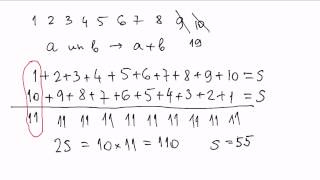 1 2 3 4 5 6 7 8 9 10
a un b → a+b 19
1+2+3+4+5+6+7+8+9+10=S
10+9+8+7+6+5+4+3+2+1=S
11 11 11 11 11 11 11 11 11 11
2S = 10×11 = 110 S=55